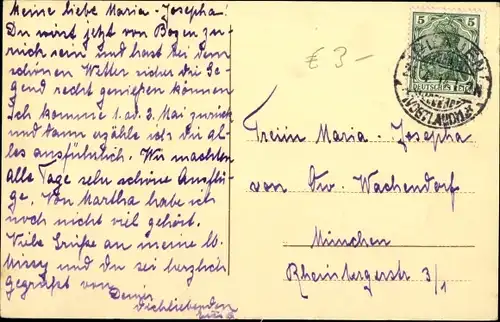 Meine liebe Maria-Josepha!
Du wirst jetzt von Bozen zu-
rück sein und hast bei dem
schönen Wetter sicher die Ge-
gend recht genießen können
Ich komme 1. od. 3. Mai zurück
und dann erzähle ich dir al-
les ausführlich. Wir machten
alle Tage sehr schöne Ausflü-
ge. Von Martha habe ich
noch nicht viel gehört.
Viele Grüße an meine
und du sei herzlich
gegrüßt von
Deiner
Dichliebenden
€ 3-
5 5
DEUTSCHES REICH
Freiin Maria-Josepha
von Ow. Wachendorf
München
Rheinbergerstr 3/1